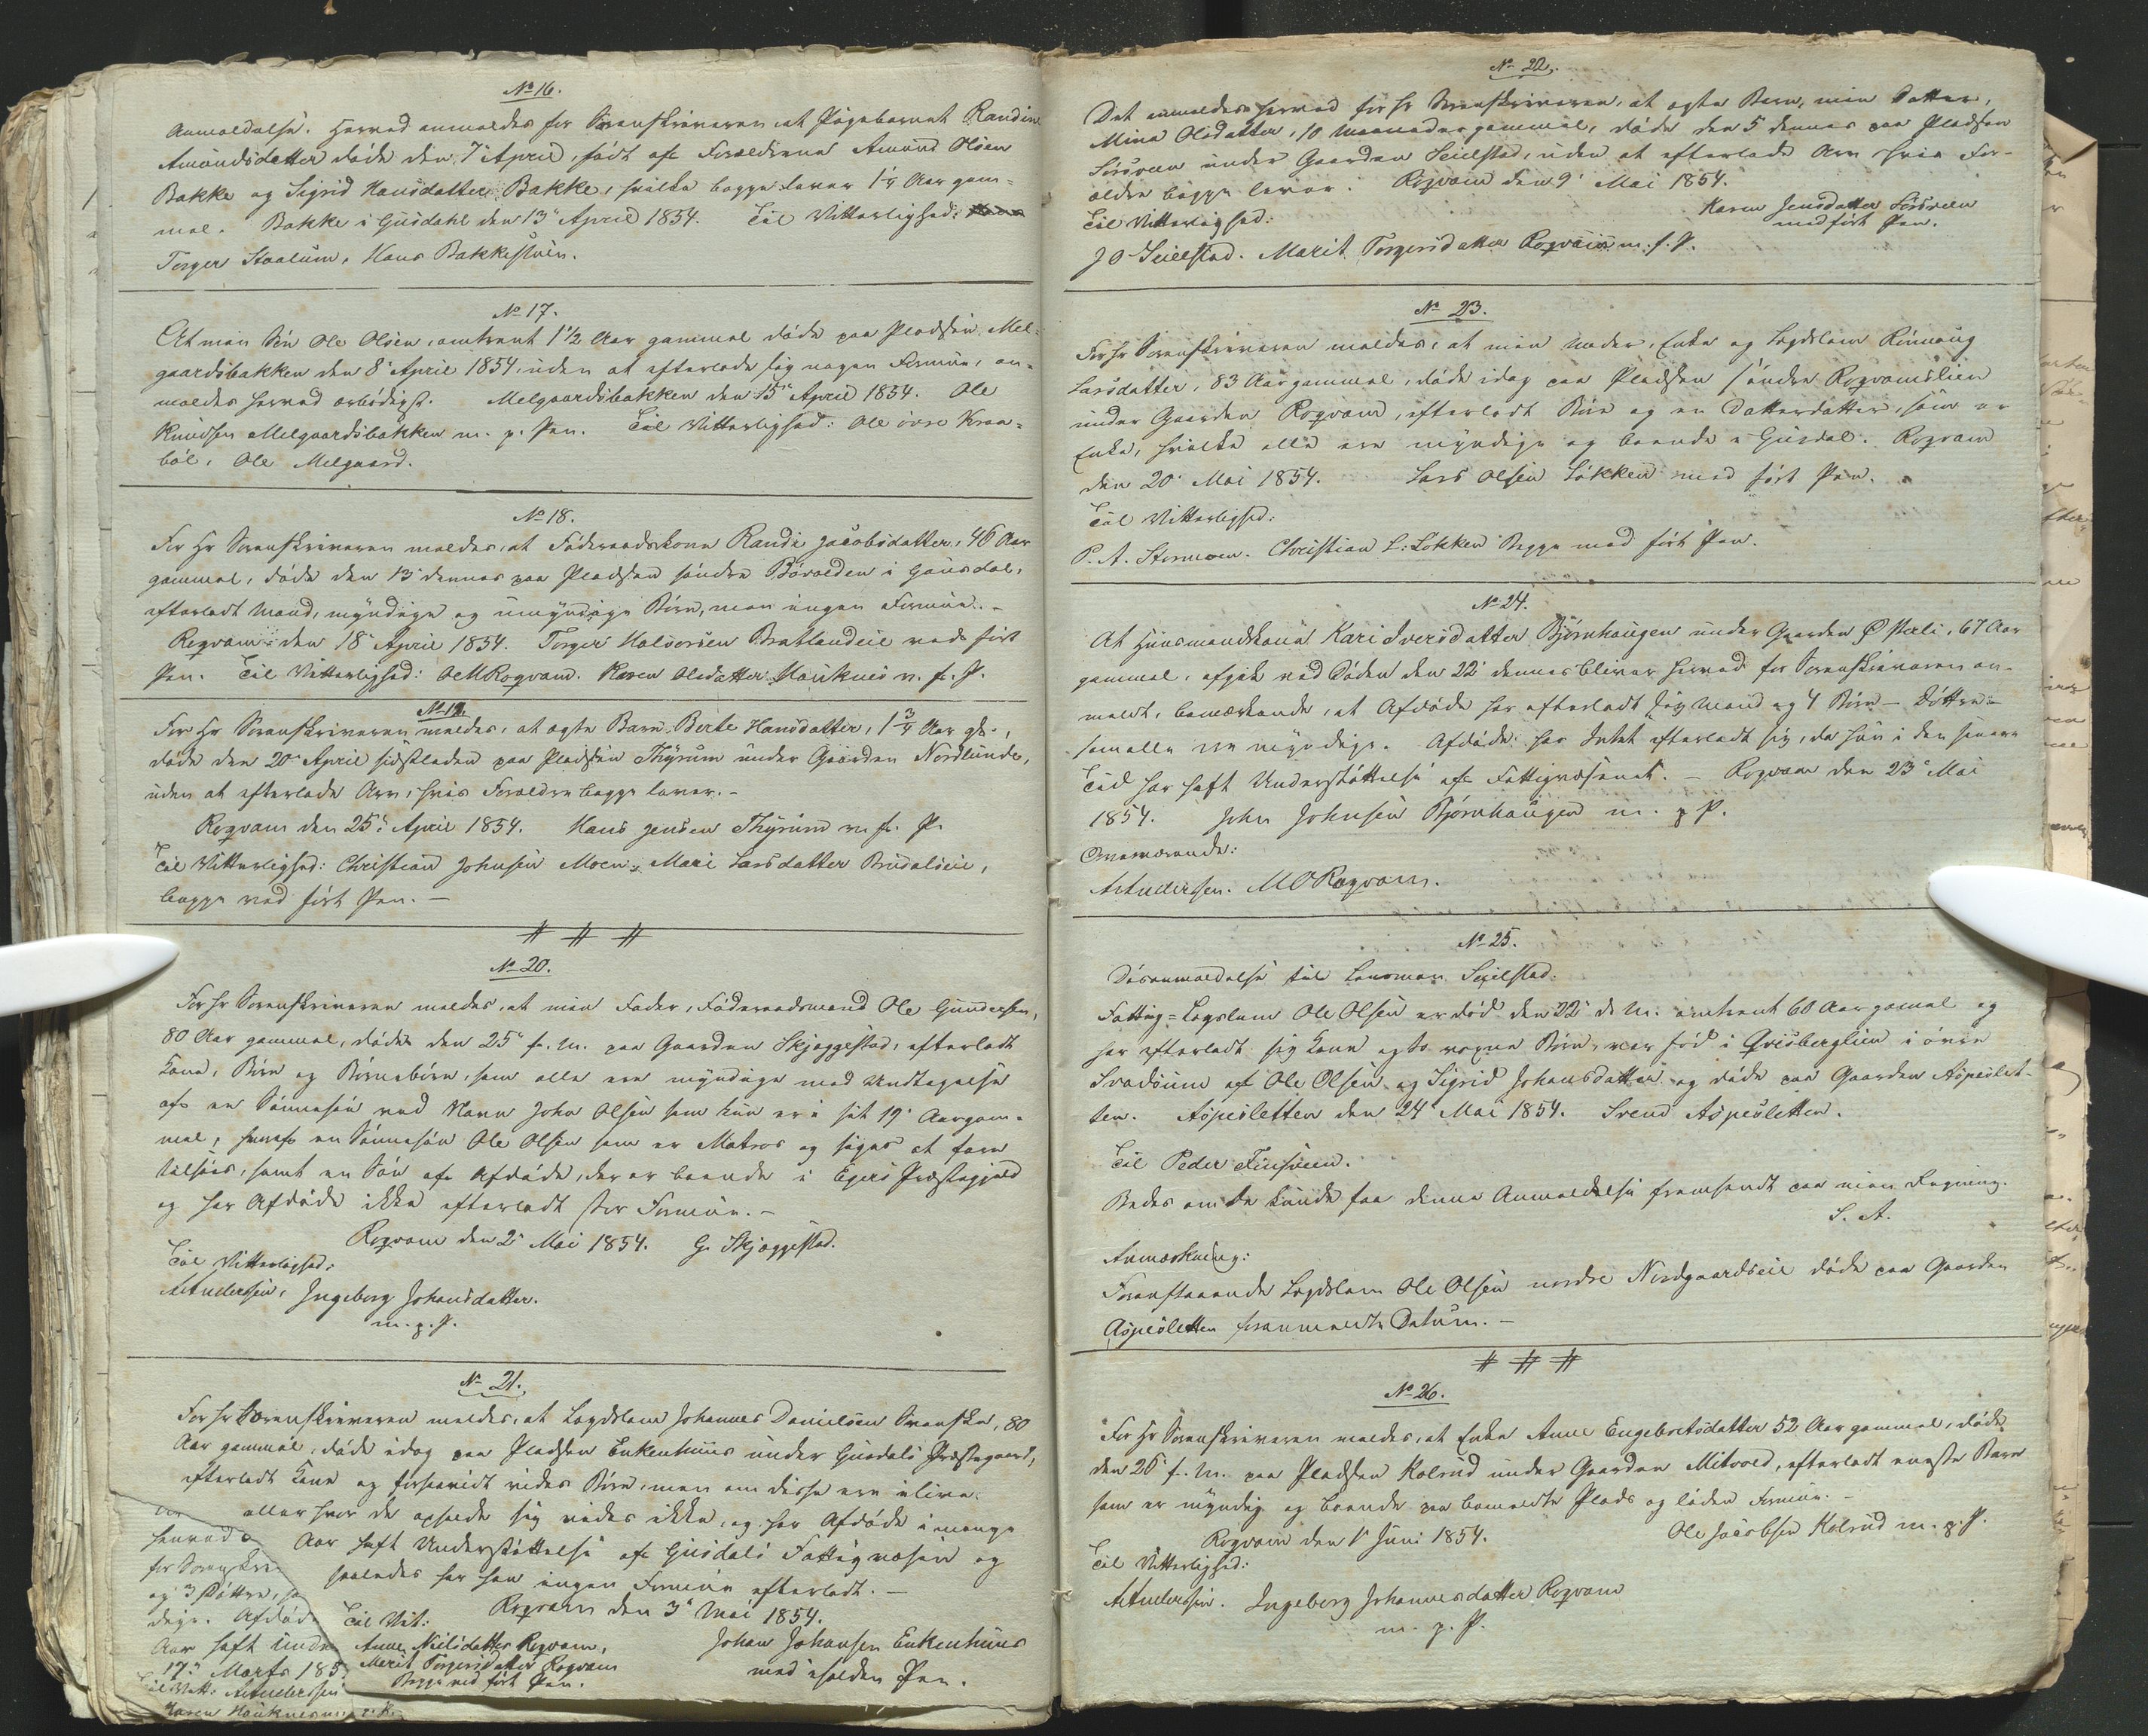 No 16.
Anmeldelse. Herved anmeldes for Sorenskriveren at Pigebarnet Randine
Amundsdatter døde den 7de April, født af Forældrene Amund Olsen
Bakke og Sigrid Hansdatter Bakke, hvilke begge lever 1¼ Aar gam=
mel. Bakke i Gusdahl den 13de April 1854. Til Vitterlighed:
Torger Staalum, Hans Bakkestuen.
No 17.
At min Søn Ole Olsen, omtrent 1½ Aar gammel døde paa Pladsen Mel=
gaardsbakken den 8de April 1854, uden at efterlade sig nogen Formue, an=
meldes herved ærbødigst. Melgaardsbakken den 15de April 1854. Ole
Knudsen Melgaardsbakken m. p. Pen. Til Vitterlighed: Ole øvre Kraa=
bøl, Ole Melgaard.
No 18.
For Hr Sorenskriveren meldes, at Føderaadskone Randi Jacobsdatter, 46 Aar
gammel, døde den 13de dennes paa Pladsen søndre i Gausdal,
efterladt Mand, myndige og umyndige Børn, men ingen Formue. -
Rogvam den 18de April 1854. Torger Halvorsen Bratlandeie med ført
Pen. Til Vitterlighed: O M Rogvam. Karen Olsdatter Hauknes m. f. P.
No 19.
For Hr Sorenskriveren meldes, at ægte Barn Berte Hansdatter, 1¾ Aar gl.,
døde den 20de April sidstleden paa Pladsen Thyrum under Gaarden Nordlunde,
uden at efterlade Arv, hvis Forældre begge lever. -
Rogvam den 25de April 1854. Hans Jensen Thyrum m. f. P.
Til Vitterlighed: Christian Johnsen Moen, Mari Larsdatter
begge med ført Pen. -
# # #
No 20.
For Hr Sorenskriveren meldes, at min Fader, Føderaadsmand Ole Gundersen,
80 Aar gammel, døde den 25de f. M. paa Gaarden Skjæggestad, efterladt
Kone, Børn og Børnebørn, som alle ere myndige med Undtagelse
af en Sønnesøn ved Navn John Olsen som kun er i sit 19de Aar gam=
mel, en Sønnesøn Ole Olsen som er Matros og siges at fare
tilsøes, samt en Søn af Afdøde, der er boende i Egers Præstegjeld
og har Afdøde ikke efterladt stor Formue. -
Rogvam den 2de Mai 1854. G. Skjæggestad.
Til Vitterlighed:
A Andersen, Ingeborg Johansdatter.
m. p. P.
No 21.
For Hr Sorenskriveren meldes, at Lægdslem Johannes Danielsen Svenske, 80
Aar gammel, døde idag paa Pladsen Enkenhuus under Gusdals Præstegaard,
efterladt Kone og forhenvidt vides Børn, men om disse ere ilive
eller hvor de opholde sig vides ikke, og har Afdøde i mange
Aar haft Understøttelse af Gusdals Fattigvæsen og
saaledes har han ingen Formue efterladt. -
Rogvam den 3de Mai 1854.
Til Vit:
Anne Nielsdatter Rogvam, Johan Johansen Enkenhuus
Marit Torgersdatter Rogvam med iholden Pen.
Begge med ført Pen.
for Sorenskri
og 3 Døttre,
dige. Afdøde
Aar haft Unde
17de Marts 185
Til Vitt: A Andersen
Karen Haukness
No 22.
Det anmeldes herved for Hr Sorenskriveren, at ægte Barn, min Datter,
Mina Olsdatter, 10 Maaneder gammel, døde den 5 dennes paa Pladsen
under Gaarden Seielstad, uden at efterlade Arv hvis For-
ældre begge lever. Rogvam den 9de Mai 1854.
Til Vitterlighed: Karen Jensdatter
med ført Pen.
J O Seielstad. Marit Torgersdatter Rogvam m. f. P.
No 23.
For Hr Sorenskriveren meldes, at min Moder, Enke og Lægdslem Rønnaug
Larsdatter, 83 Aar gammel, døde idag paa Pladsen søndre Rogvamslien
under Gaarden Rogvam, efterladt Børn og en Datterdatter, som er
Enke, hvilke alle ere myndige og boende i Gusdal. Rogvam
den 20de Mai 1854. Lars Olsen Løkken med ført Pen.
Til Vitterlighed:
P. A. Stormoen. Christian L. Løkken Begge med ført Pen.
No 24.
At Huusmandskone Kari Iversdatter Bjørnhaugen under Gaarden Østerli, 67 Aar
gammel, afgik ved Døden den 22de dennes bliver herved for Sorenskriveren an-
meldt, bemærkende, at Afdøde har efterladt sig Mand og 4 Børn - Døttre -
som alle ere myndige. Afdøde har Intet efterladt sig, da hun i den senere
Tid har haft Understøttelse af Fattigvæsenet. - Rogvam den 23de Mai
1854. John Johnsen Bjørnhaugen m. p P.
Overværende:
A Andersen. M O Rogvam.
No 25.
Dødsanmeldelse til Lensman Seielstad.
Fattig=Lægslem Ole Olsen er død den 22de d. M. omtrent 60 Aar gamel og
har efterladt sig Kone og to voxne Børn, var fød i Qvisberglien i øvre
Svadsum af Ole Olsen og Sigrid Johansdatter og døde paa Gaarden Aspeslet-
ten. Aspesletten den 24de Mai 1854. Svend Aspesletten.
Til Peder
Bedes om De kunde faa denne Anmeldelse fremsendt paa min Regning.
S. A.
Anmærkning:
Foranstaaende Lægdslem Ole Olsen nordre Nordgaardseie døde paa Gaarden
Aspesletten foranmeldte Datum. -
# # #
No 26.
For Hr Sorenskriveren meldes, at Enke Anne Engebretsdatter 52 Aar gammel, døde
den 26 f. M. paa Pladsen Kolrud under Gaarden Mitvold, efterladt eneste Barn
som er myndig og boende paa bemeldte Plads og liden Formue. -
Rogvam den 1ste Juni 1854. Ole Jacobsen Kolrud m. p. P.
Til Vitterlighed:
A Andersen. Ingeborg Johannesdatter Rogvam
m. p. P.